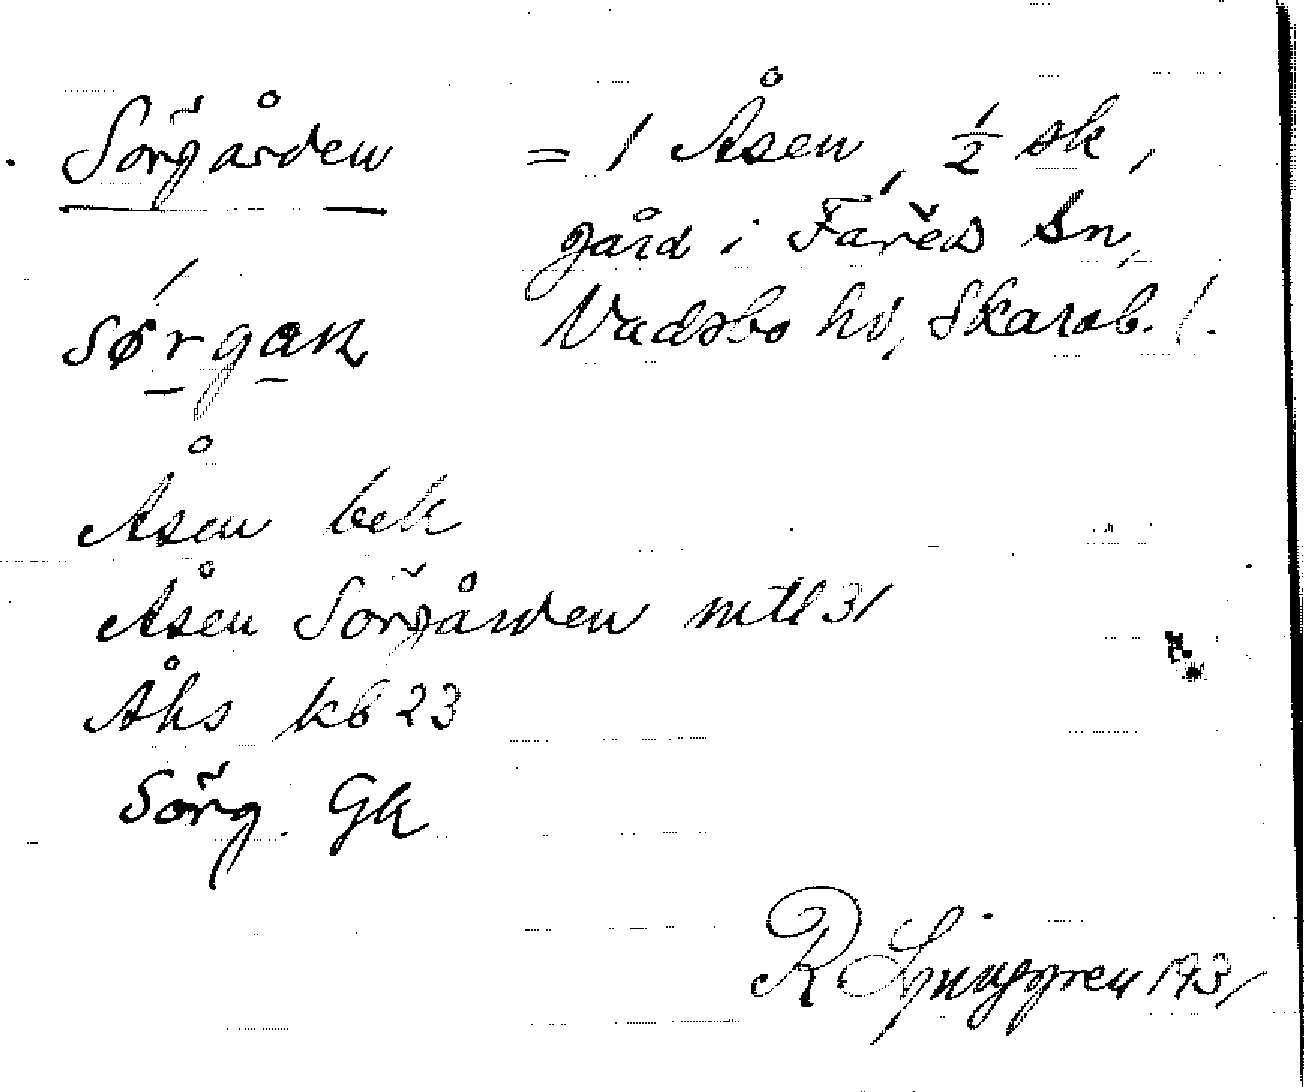 Sörgården = 1 Åsen, 1/2 sk,
gård i Fåreds Sn,
sørgan Vadsbo hd, Skarab. l.
Åsen bek
Åsen Sörgården mtl 31
Åhs kb 23
Sörg. Gk
R Ljunggren 1931